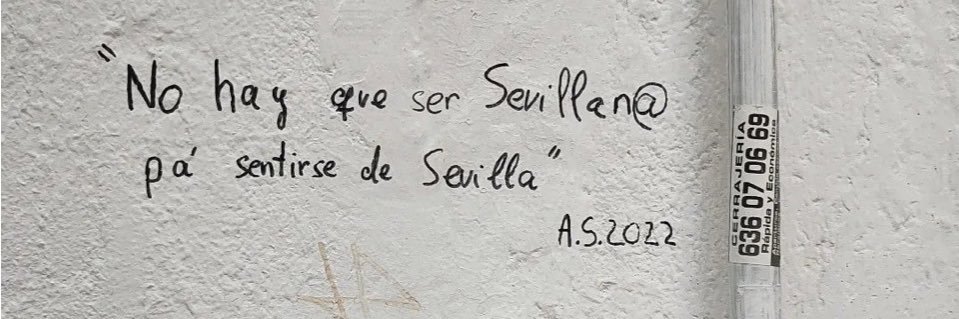 "No hay que ser Sevillan@
pá sentirse de Sevilla"
A.S.2022
CERRAJERÍA
636 07 06 69
Rápida y Económica